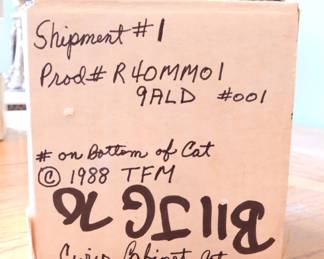 Shipment #1
Prod# R40MM01
9ALD #001
# on Bottom of Cat
© 1988 TFM
Curio Cabinet Cat